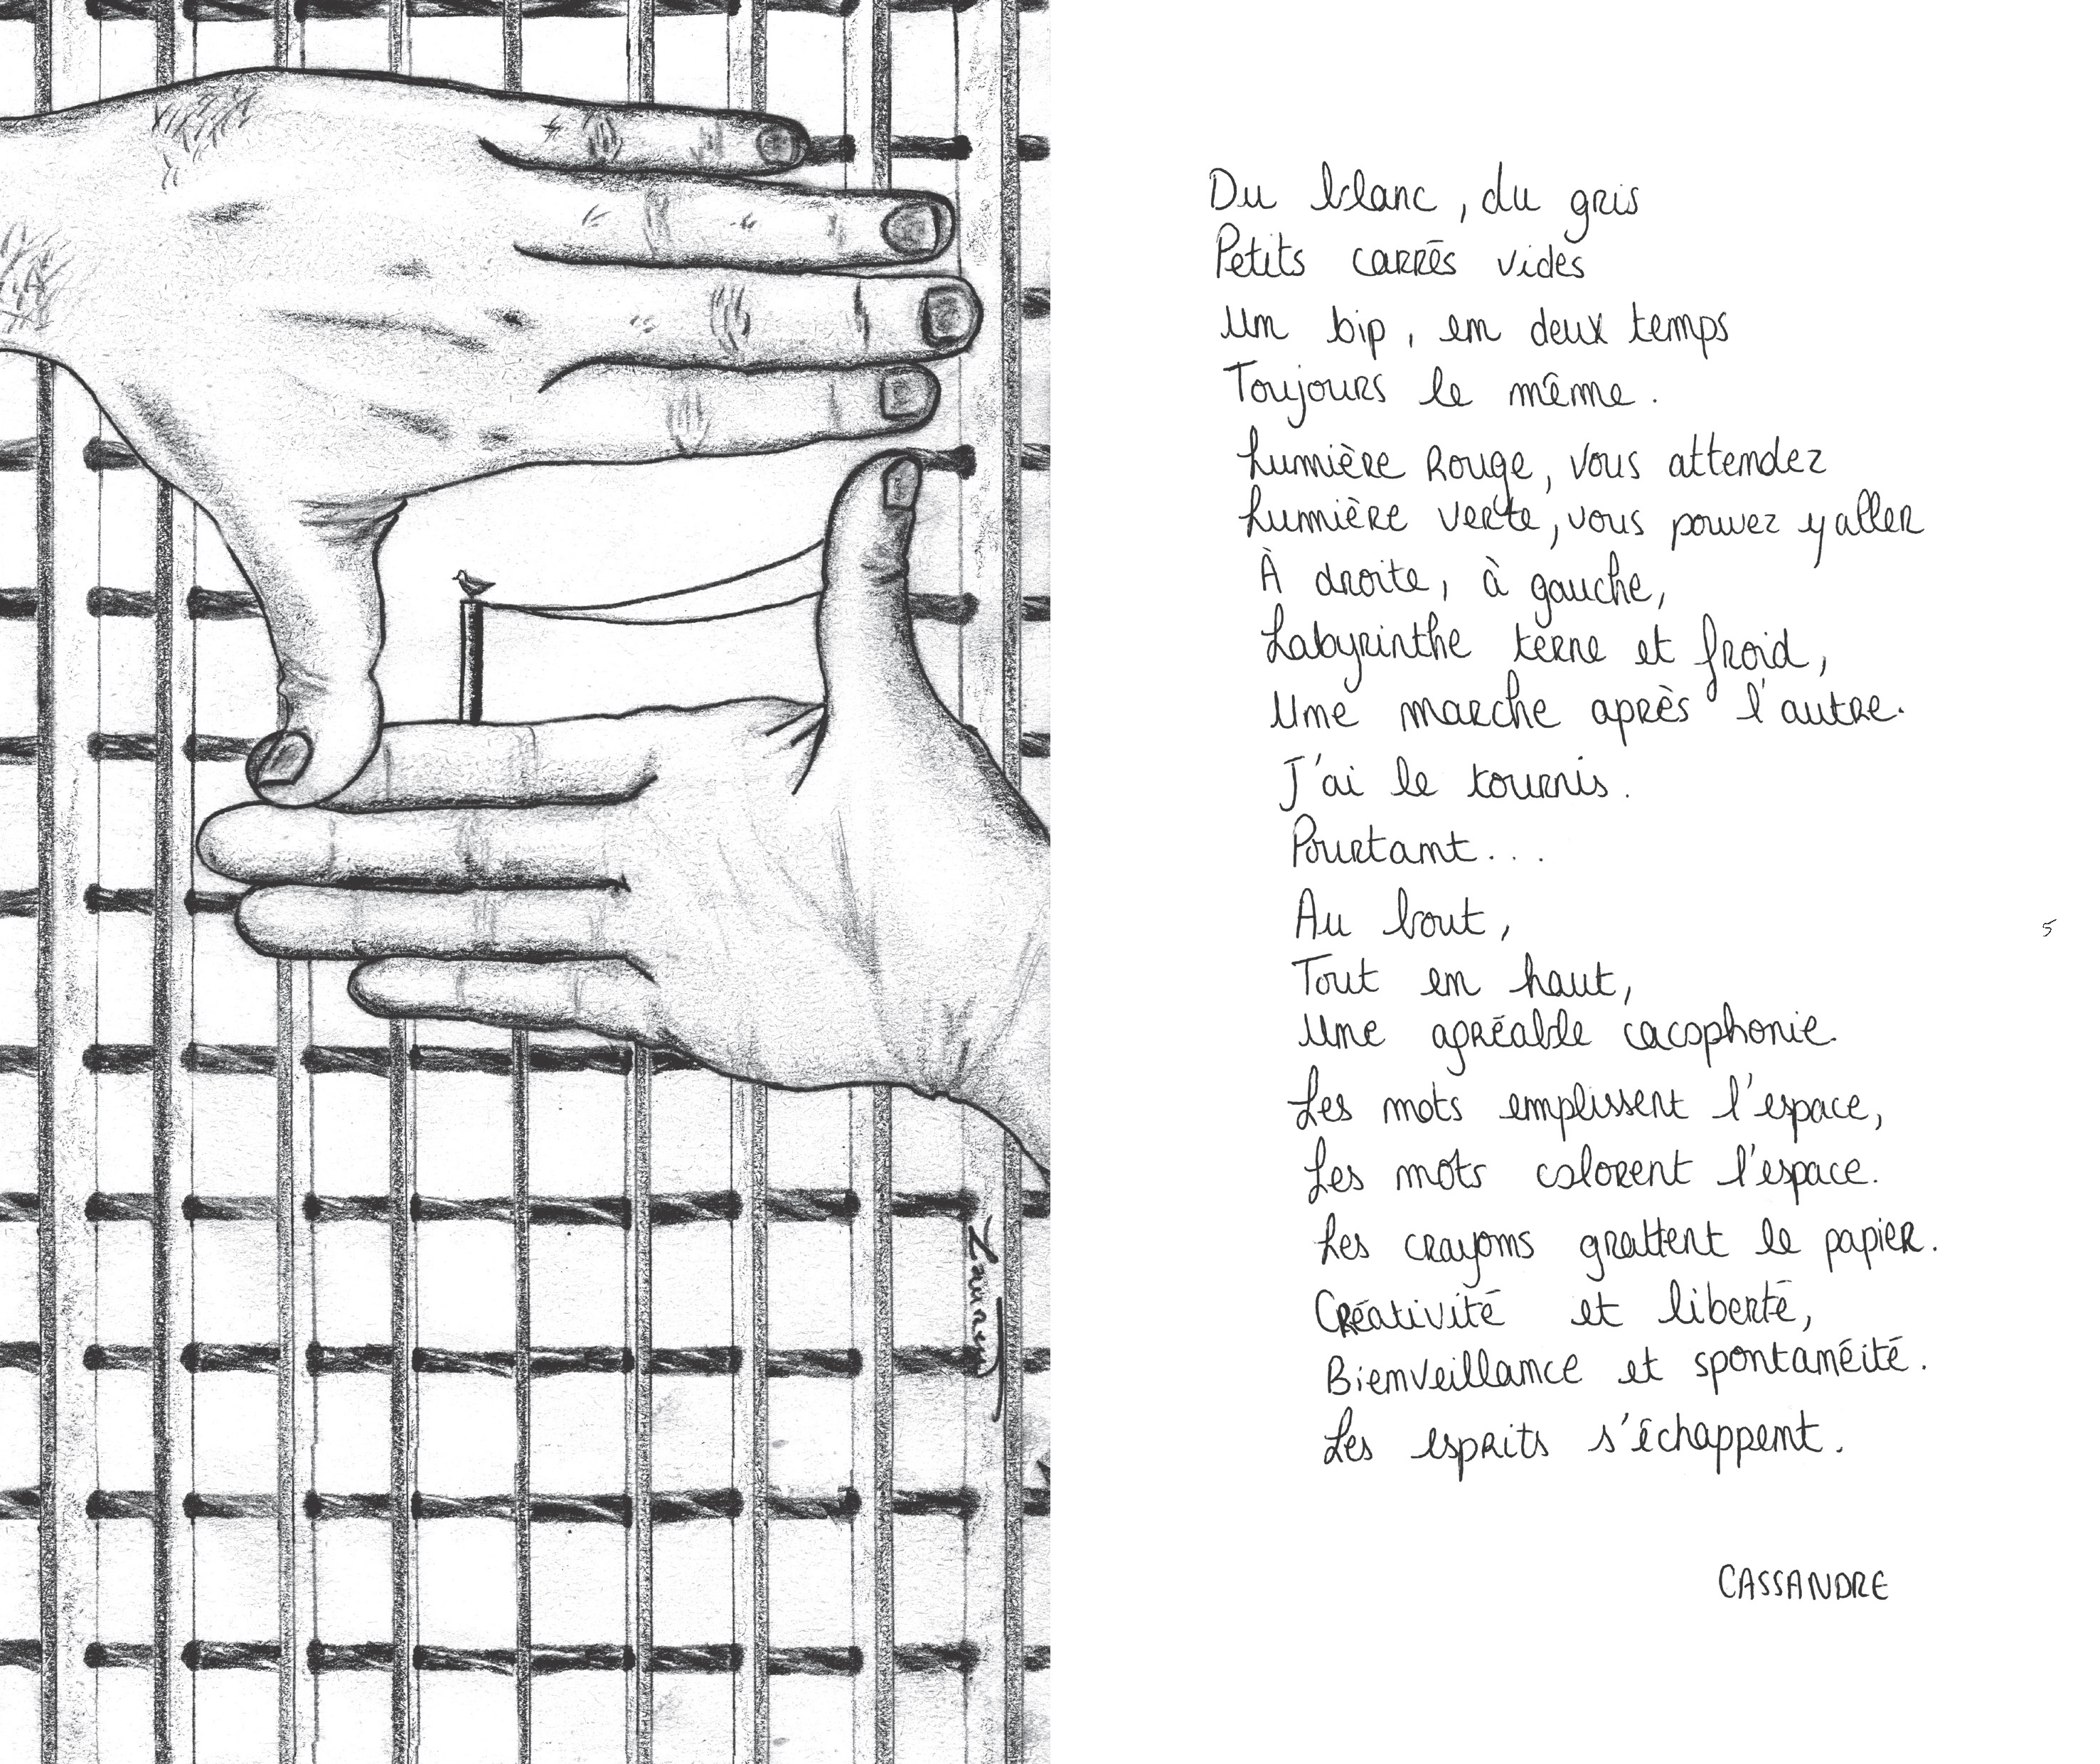 Du blanc, du gris
Petits carrés vides
Un bip, en deux temps
Toujours le même.
Lumière Rouge, vous attendez
Lumière verte, vous pouvez y aller
À droite, à gauche,
Labyrinthe terne et froid,
Une marche après l'autre.
J'ai le tournis.
Pourtant...
Au bout,
Tout en haut,
Une agréable cacophonie.
Les mots emplissent l'espace,
Les mots colorent l'espace.
Les crayons grattent le papier.
Créativité et liberté,
Bienveillance et spontanéité.
Les esprits s'échappent.
CASSANDRE
5